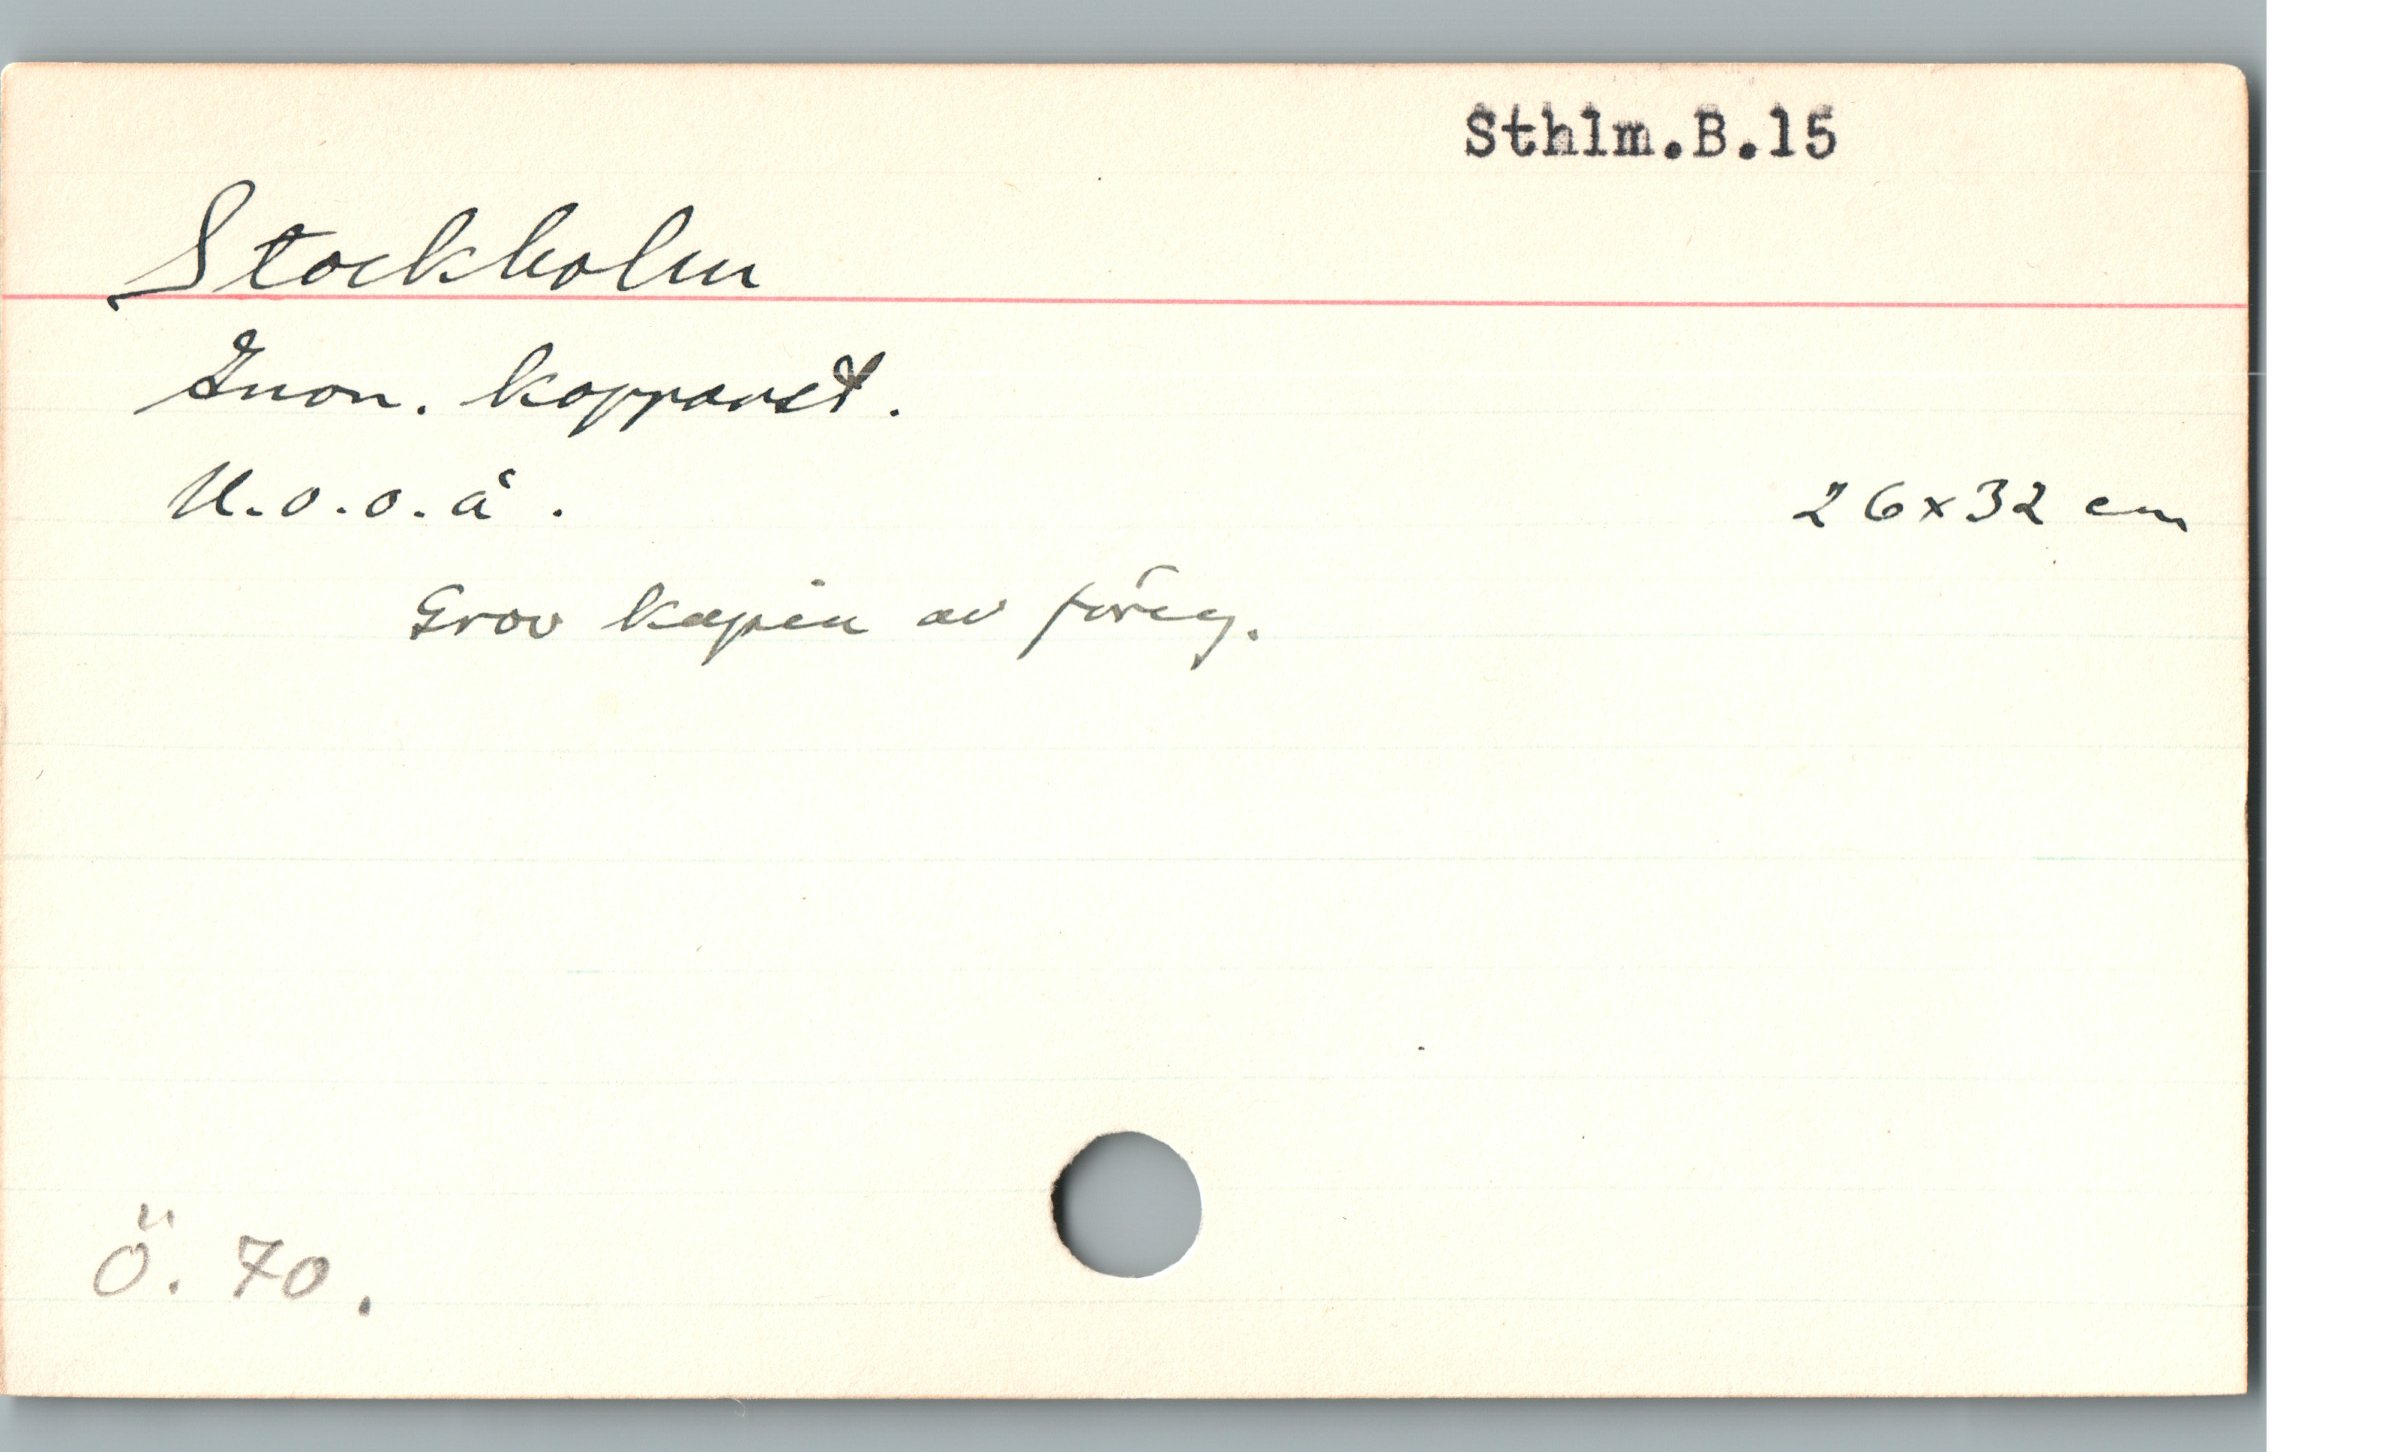 Sthlm.B.15
Stockholm
Anon. kopparst.
U.o.o.å. 26x32 cm
Grov kopia av föreg.
Ö. 70.